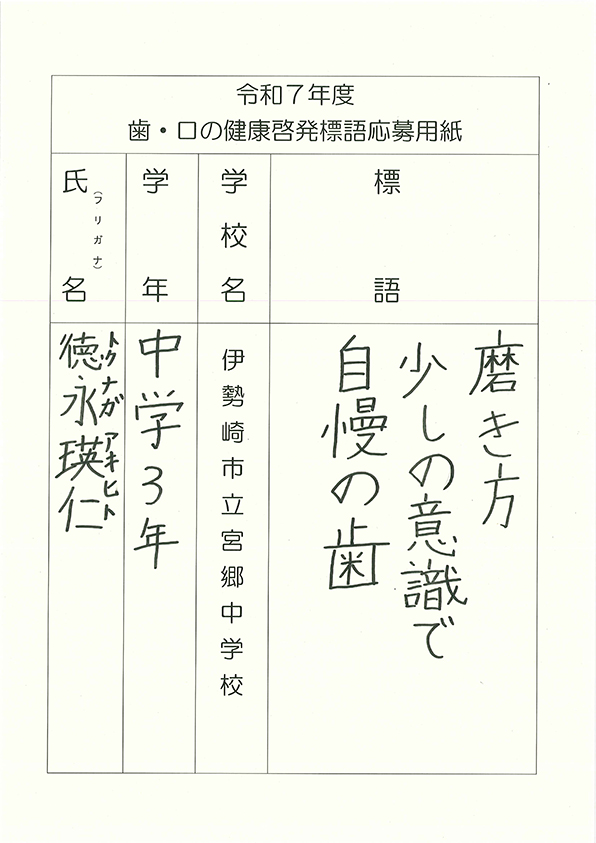 令和7年度
歯・口の健康啓発標語応募用紙
標語
磨き方
少しの意識で
自慢の歯
学校名
伊勢崎市立宮郷中学校
学年
中学3年
氏名
(フリガナ)
トクナガ アキヒト
徳永瑛仁